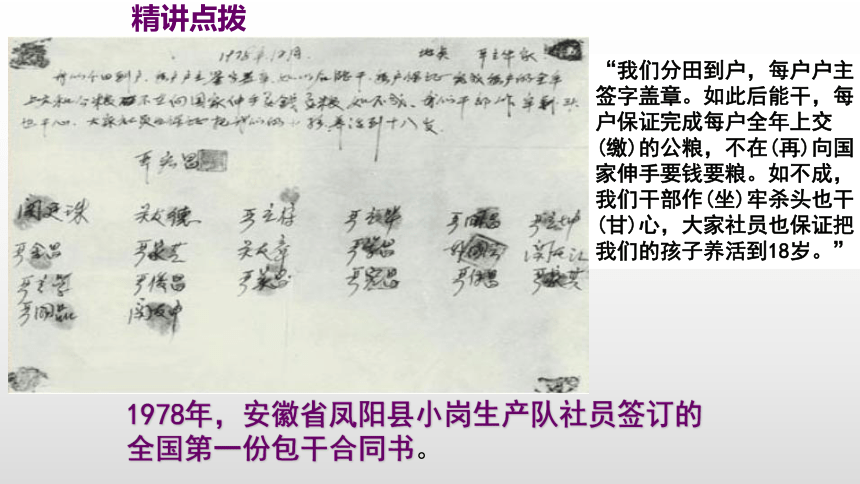 精讲点拨
1978年12月 地点 严立华家
我们分田到户,每户户主签字盖章,如以后能干,每户保证完成每户的全年
上交和公粮,不在向国家伸手要钱要粮。如不成,我们干部作牢杀头
也干心,大家社员也保证把我们的小孩养活到十八岁。
严宏昌
关廷珠 关友德 严立符 严立华 严国昌 严立坤
严金昌 严家芝 关友章 严学昌 韩国云 关友江
严立学 严俊昌 严美昌 严宏昌 严付昌 严家其
严国品 关友申
“我们分田到户,每户户主
签字盖章。如此后能干,每
户保证完成每户全年上交
(缴)的公粮,不在(再)向国
家伸手要钱要粮。如不成,
我们干部作(坐)牢杀头也干
(甘)心,大家社员也保证把
我们的孩子养活到18岁。”
1978年,安徽省凤阳县小岗生产队社员签订的
全国第一份包干合同书。